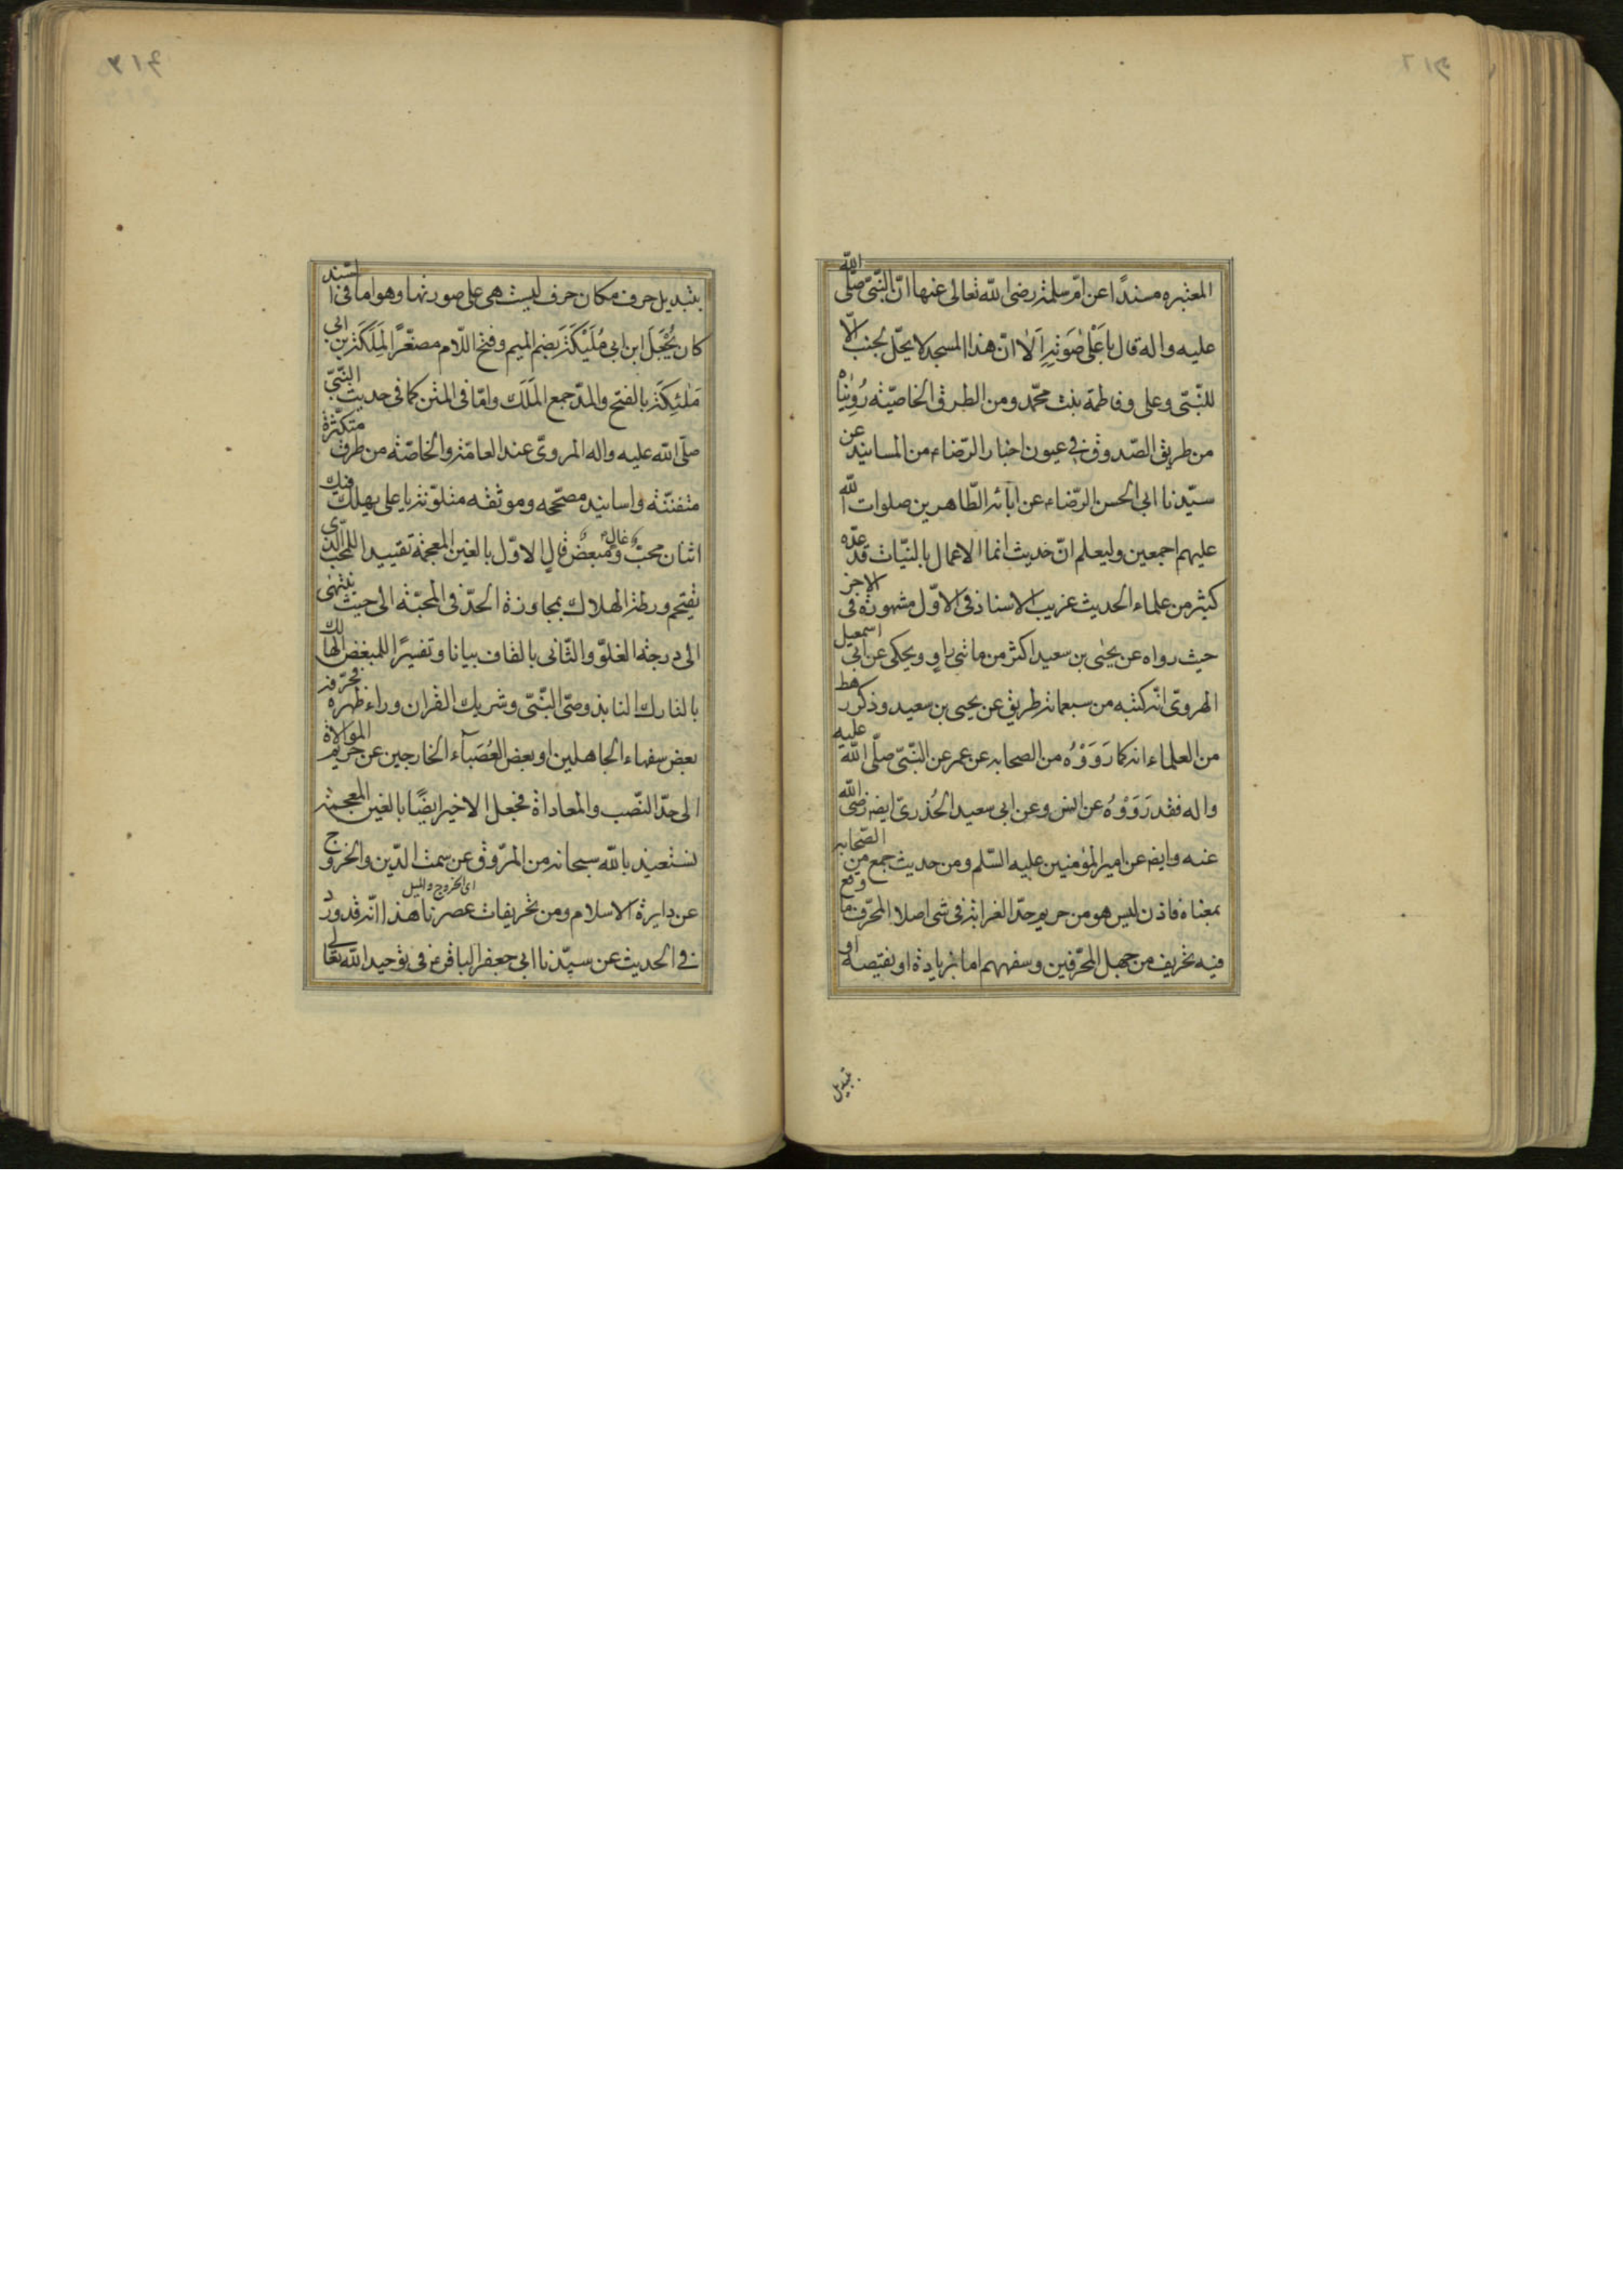 المعتبره مسندًا عن امّ سلمة رضى الله تعالى عنها انّ النّبىّ صلّى الله
عليه واله قال باَعْلىٰ صَوتِهِ اَلا انّ هذا المسجد لا يحلّ لجنب الّا
للنّبىّ وعلى وفاطمة بنت محمّد ومن الطرق الخاصيّة رُوِينٰاه
من طريق الصّدوق فى عيون اخبار الرّضاء من المسانيد عن
سيّدنا ابى الحسن الرّضاء عن ابآئه الطّاهرين صلوات الله
عليهم اجمعين وليعلم انّ حديث انما الاعمال بالنيّات قد عدّه
كثير من علماء الحديث غريب الاسناد فى الاوّل مشهوره فى الاخر
حيث رواه عن يحيى بن سعيد اكثر من ماتى راوٍ ويحكى عن ابى اسمعيل
الهروىّ انّه كتبه من سبعمائة طريق عن يحيى بن سعيد وذكر رهط
من العلماء انه كما رَوَوْهُ من الصحابه عن عمر عن النّبىّ صلّى الله عليه
واله فقد رَوَوْهُ عن انس وعن ابى سعيد الخُدرىّ ايضا رضى الله
عنه وايضا عن امير المؤمنين عليه السّلم ومن حديث جمع من الصّحابه
بمعناه فاذن ليس هو من حريم حدّ الغرابة فى شى اصلا المحرّف ما وقع
فيه تحريف من جهل المحرّفين وسفههم اما بزيادة او نقيصه او
تبديل
بتبديل حرف مكان حرف ليست هى على صورتها وهو اما فى السّند
كان يُجْعَلَ ابن ابى مُلَيْكَة بضم الميم وفتح اللّام مصغّرًا لمَلَكَة بن ابى
مَلٰئِكَة بالفتح والمدّ جمع المَلَك وامّا فى المتن كما فى حديث النّبىّ
صلّى الله عليه واله المروىّ عند العامّة والخاصّة من طرق متكثّرة
متفننّة واسانيد مصحّحه وموثّقه متلوّنة يا على يهلك فيك
اثنان محبّ غال ومبغض قال الاوّل بالغين المعجمة تقييدا للمحبّ الّذى
تقتحم ورطة الهلاك بمجاوزة الحدّ فى المحبّة الى حيث ينتهى
الى درجة الغلوّ والثّانى بالقاف بيانا وتفسيرًا للمبغض الهالك
بالتارك النابذ وصىّ النّبىّ وشريك القران وراء ظهره فحرّفه
بعض سفهاء الجاهلين او بعض العُصَبآء الخارجين عن حريم الموالاة
الى حدّ النّصب والمعاداة فجعل الاخير ايضًا بالغين المعجمة
نستعيذ بالله سبحانه من المرّوق عن سمت الدّين والخروج
اى الخروج والميل
عن دايرة الاسلام ومن تحريفات عصرنا هذا انّه قد ورد
فى الحديث عن سيّدنا ابى جعفر الباقر ع فى توحيد الله تعالى